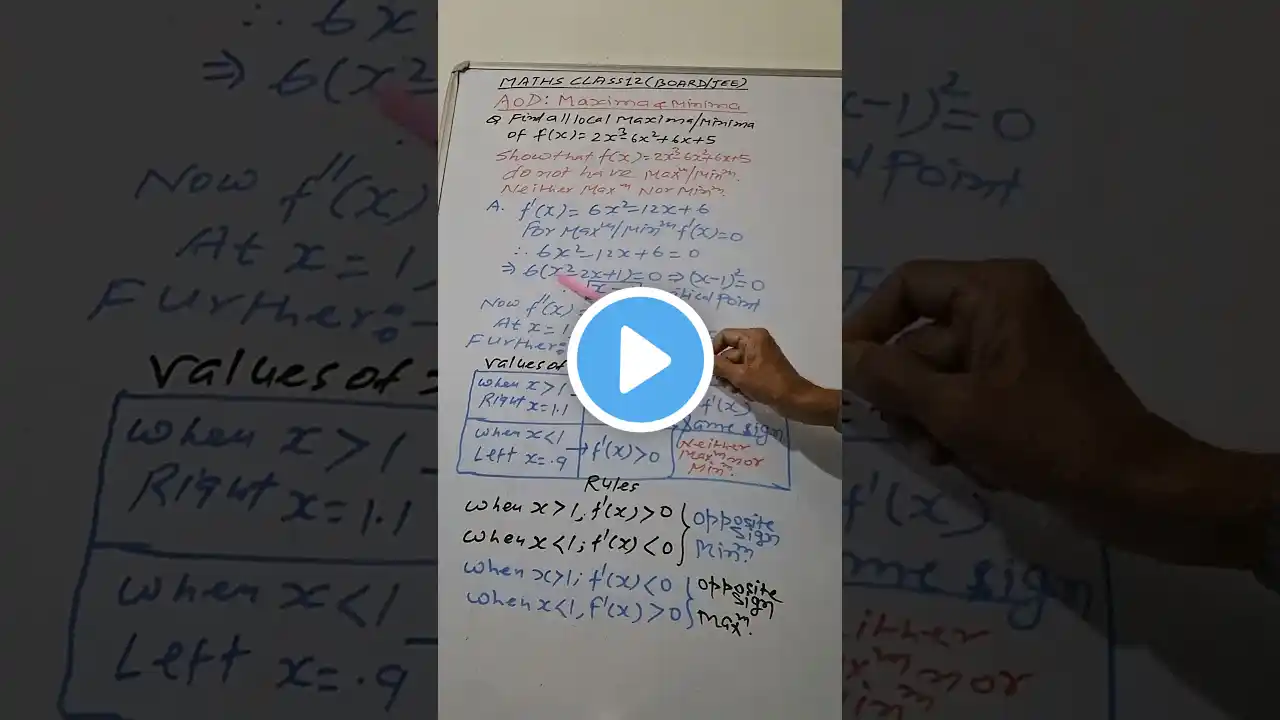 MATHS CLASS12(BOARD/JEE)
AOD: Maxima & Minima
Q Find all local Maxima/Minima
of f(x)= 2x³-6x²+6x+5
Show that f(x)=2x³-6x²+6x+5
do not have Maxᵐ/Minᵐ.
Neither Maxᵐ Nor Minᵐ.
A. f'(x)= 6x²-12x+6
For Maxᵐ/Minᵐ f'(x)=0
∴ 6x²-12x+6=0
⇒ 6(x²-2x+1)=0 ⇒ (x-1)²=0
Point
Now f''(x)
At x=1,
Further:-
values of
when x>1
Right x=1.1
f'(x)
same sign
when x<1
Left x=.9
→f'(x)>0
Neither
Maxᵐ nor
Minᵐ.
Rules
when x>1, f'(x)>0
when x<1; f'(x)<0
opposite
sign
Minᵐ.
when x>1; f'(x)<0
when x<1, f'(x)>0
opposite
sign
Maxᵐ.